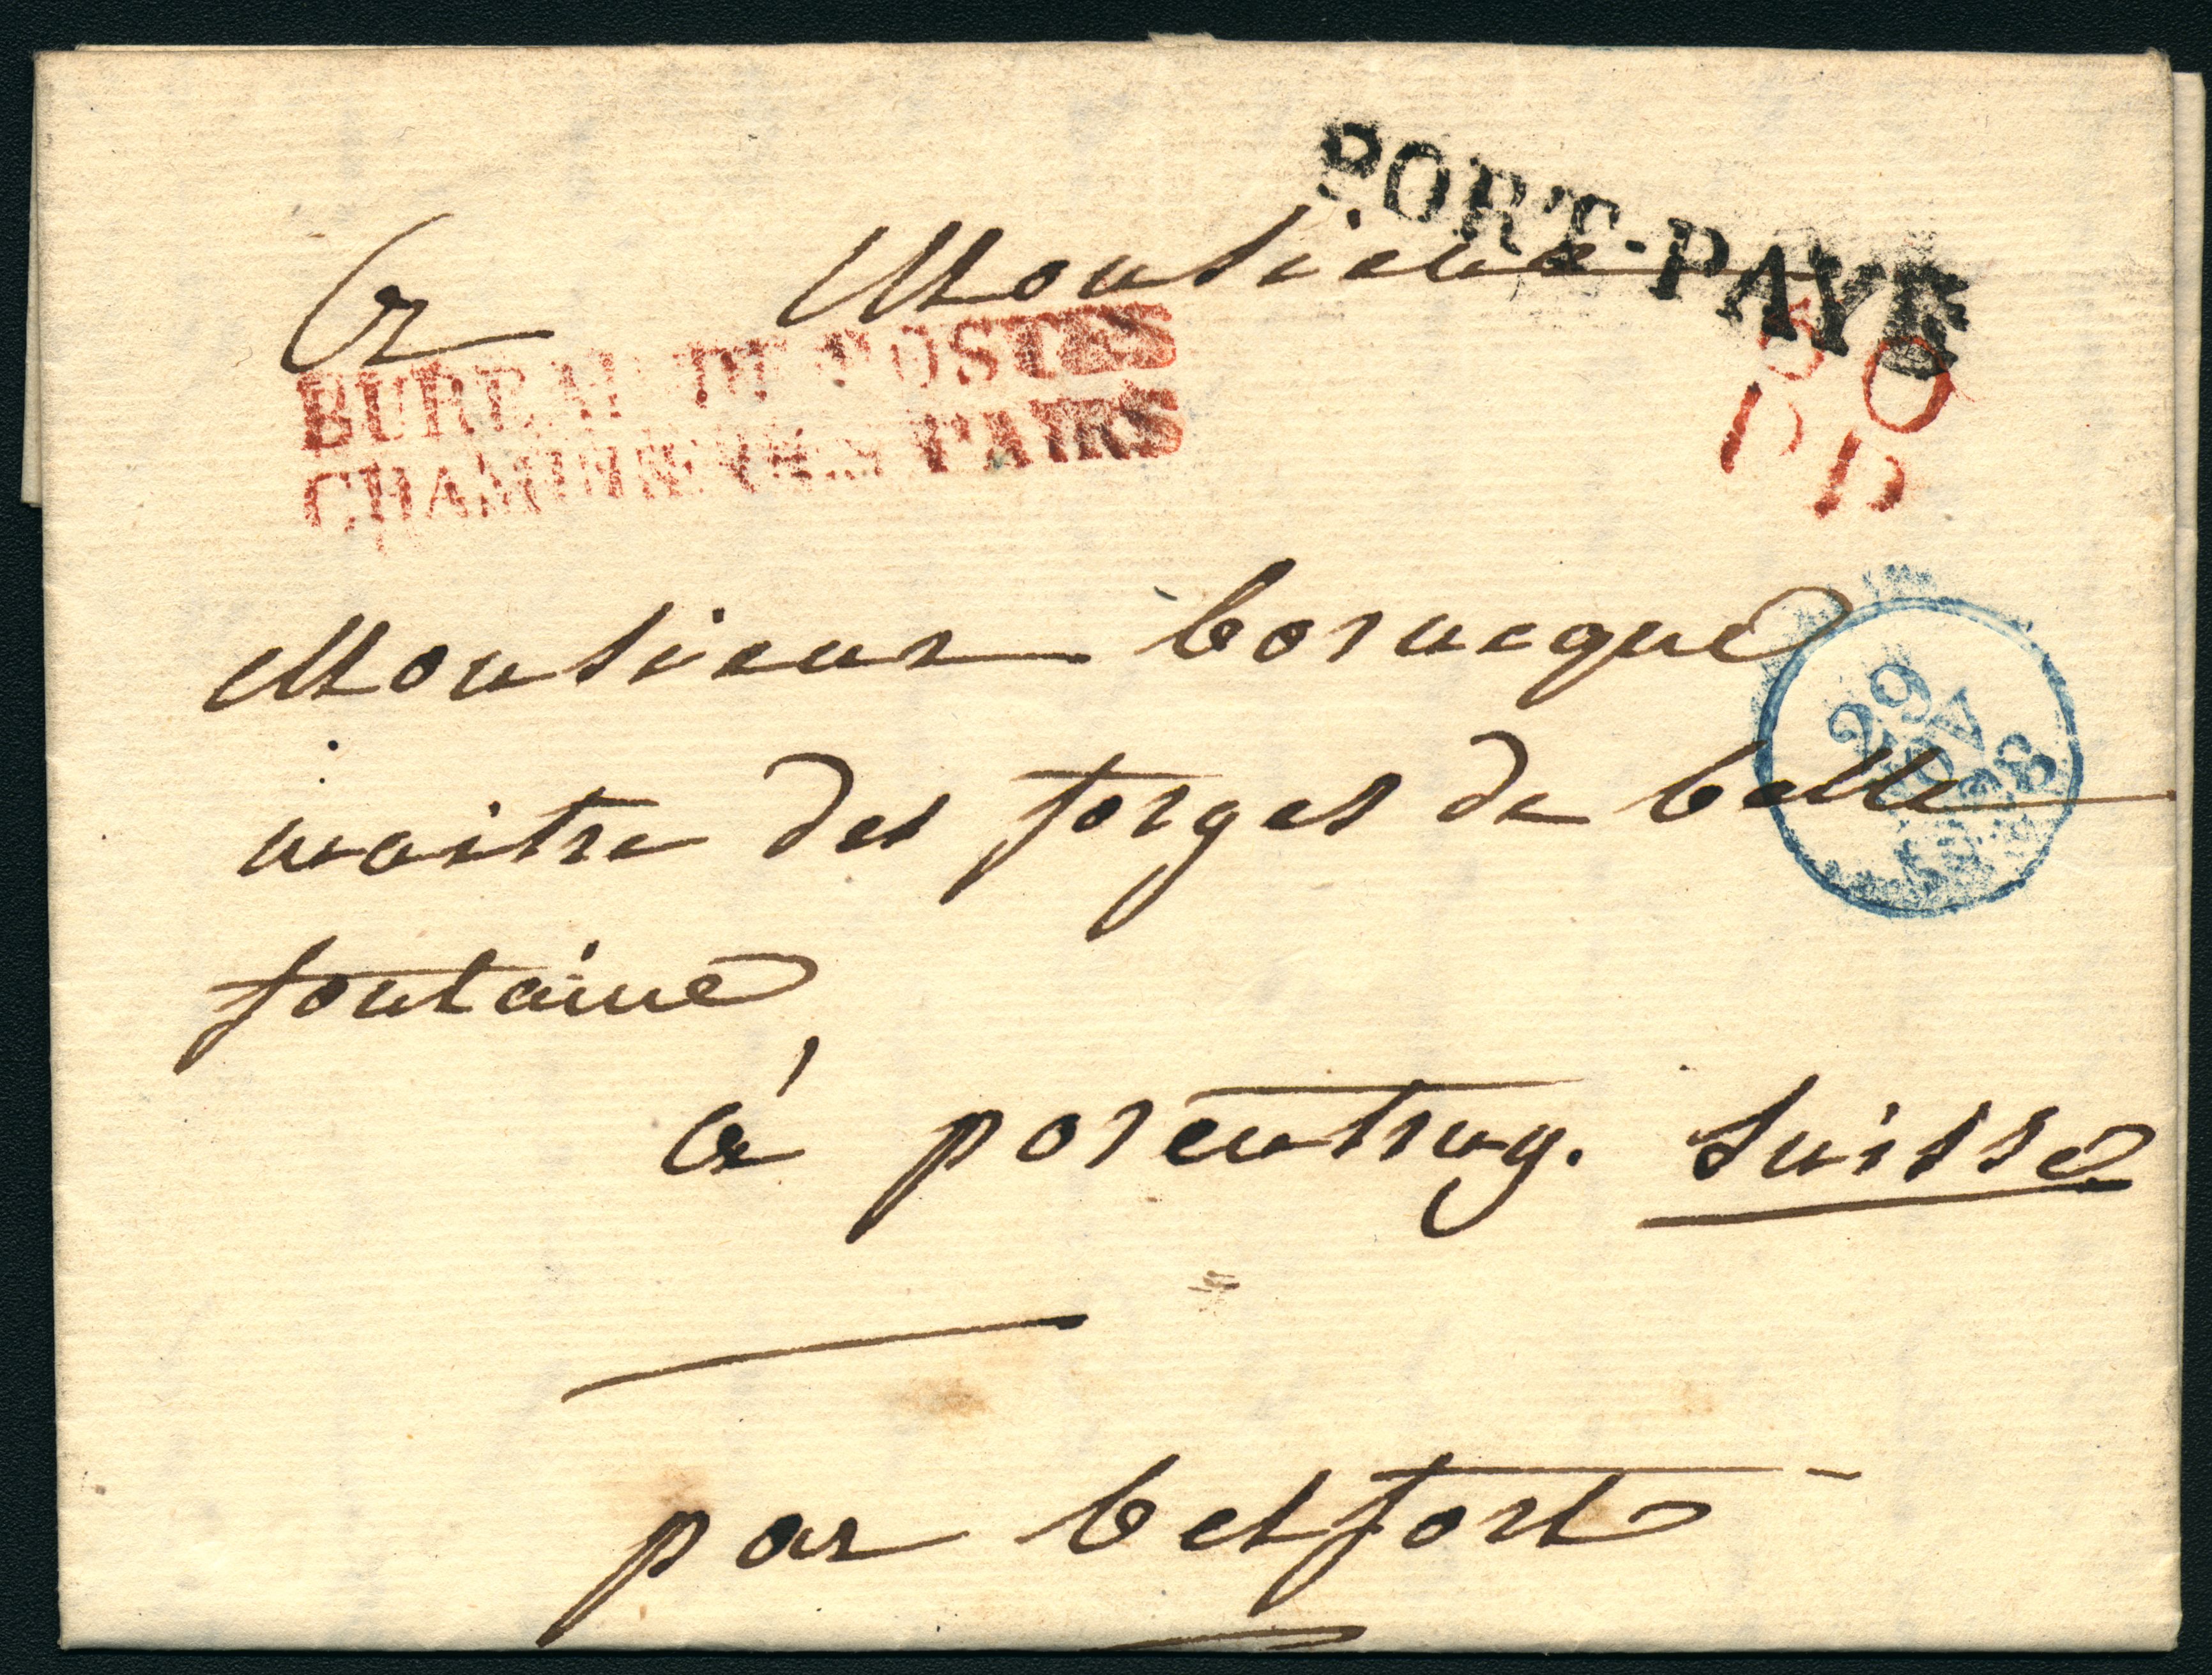 PORT-PAYÉ
Monsieur
BUREAU DE POSTES
CHAMBRE DES PAIRS
60
P P
Monsieur bornecque
maitre des forges de belle
29
fontaine
à porentruy. Suisse
par belfort